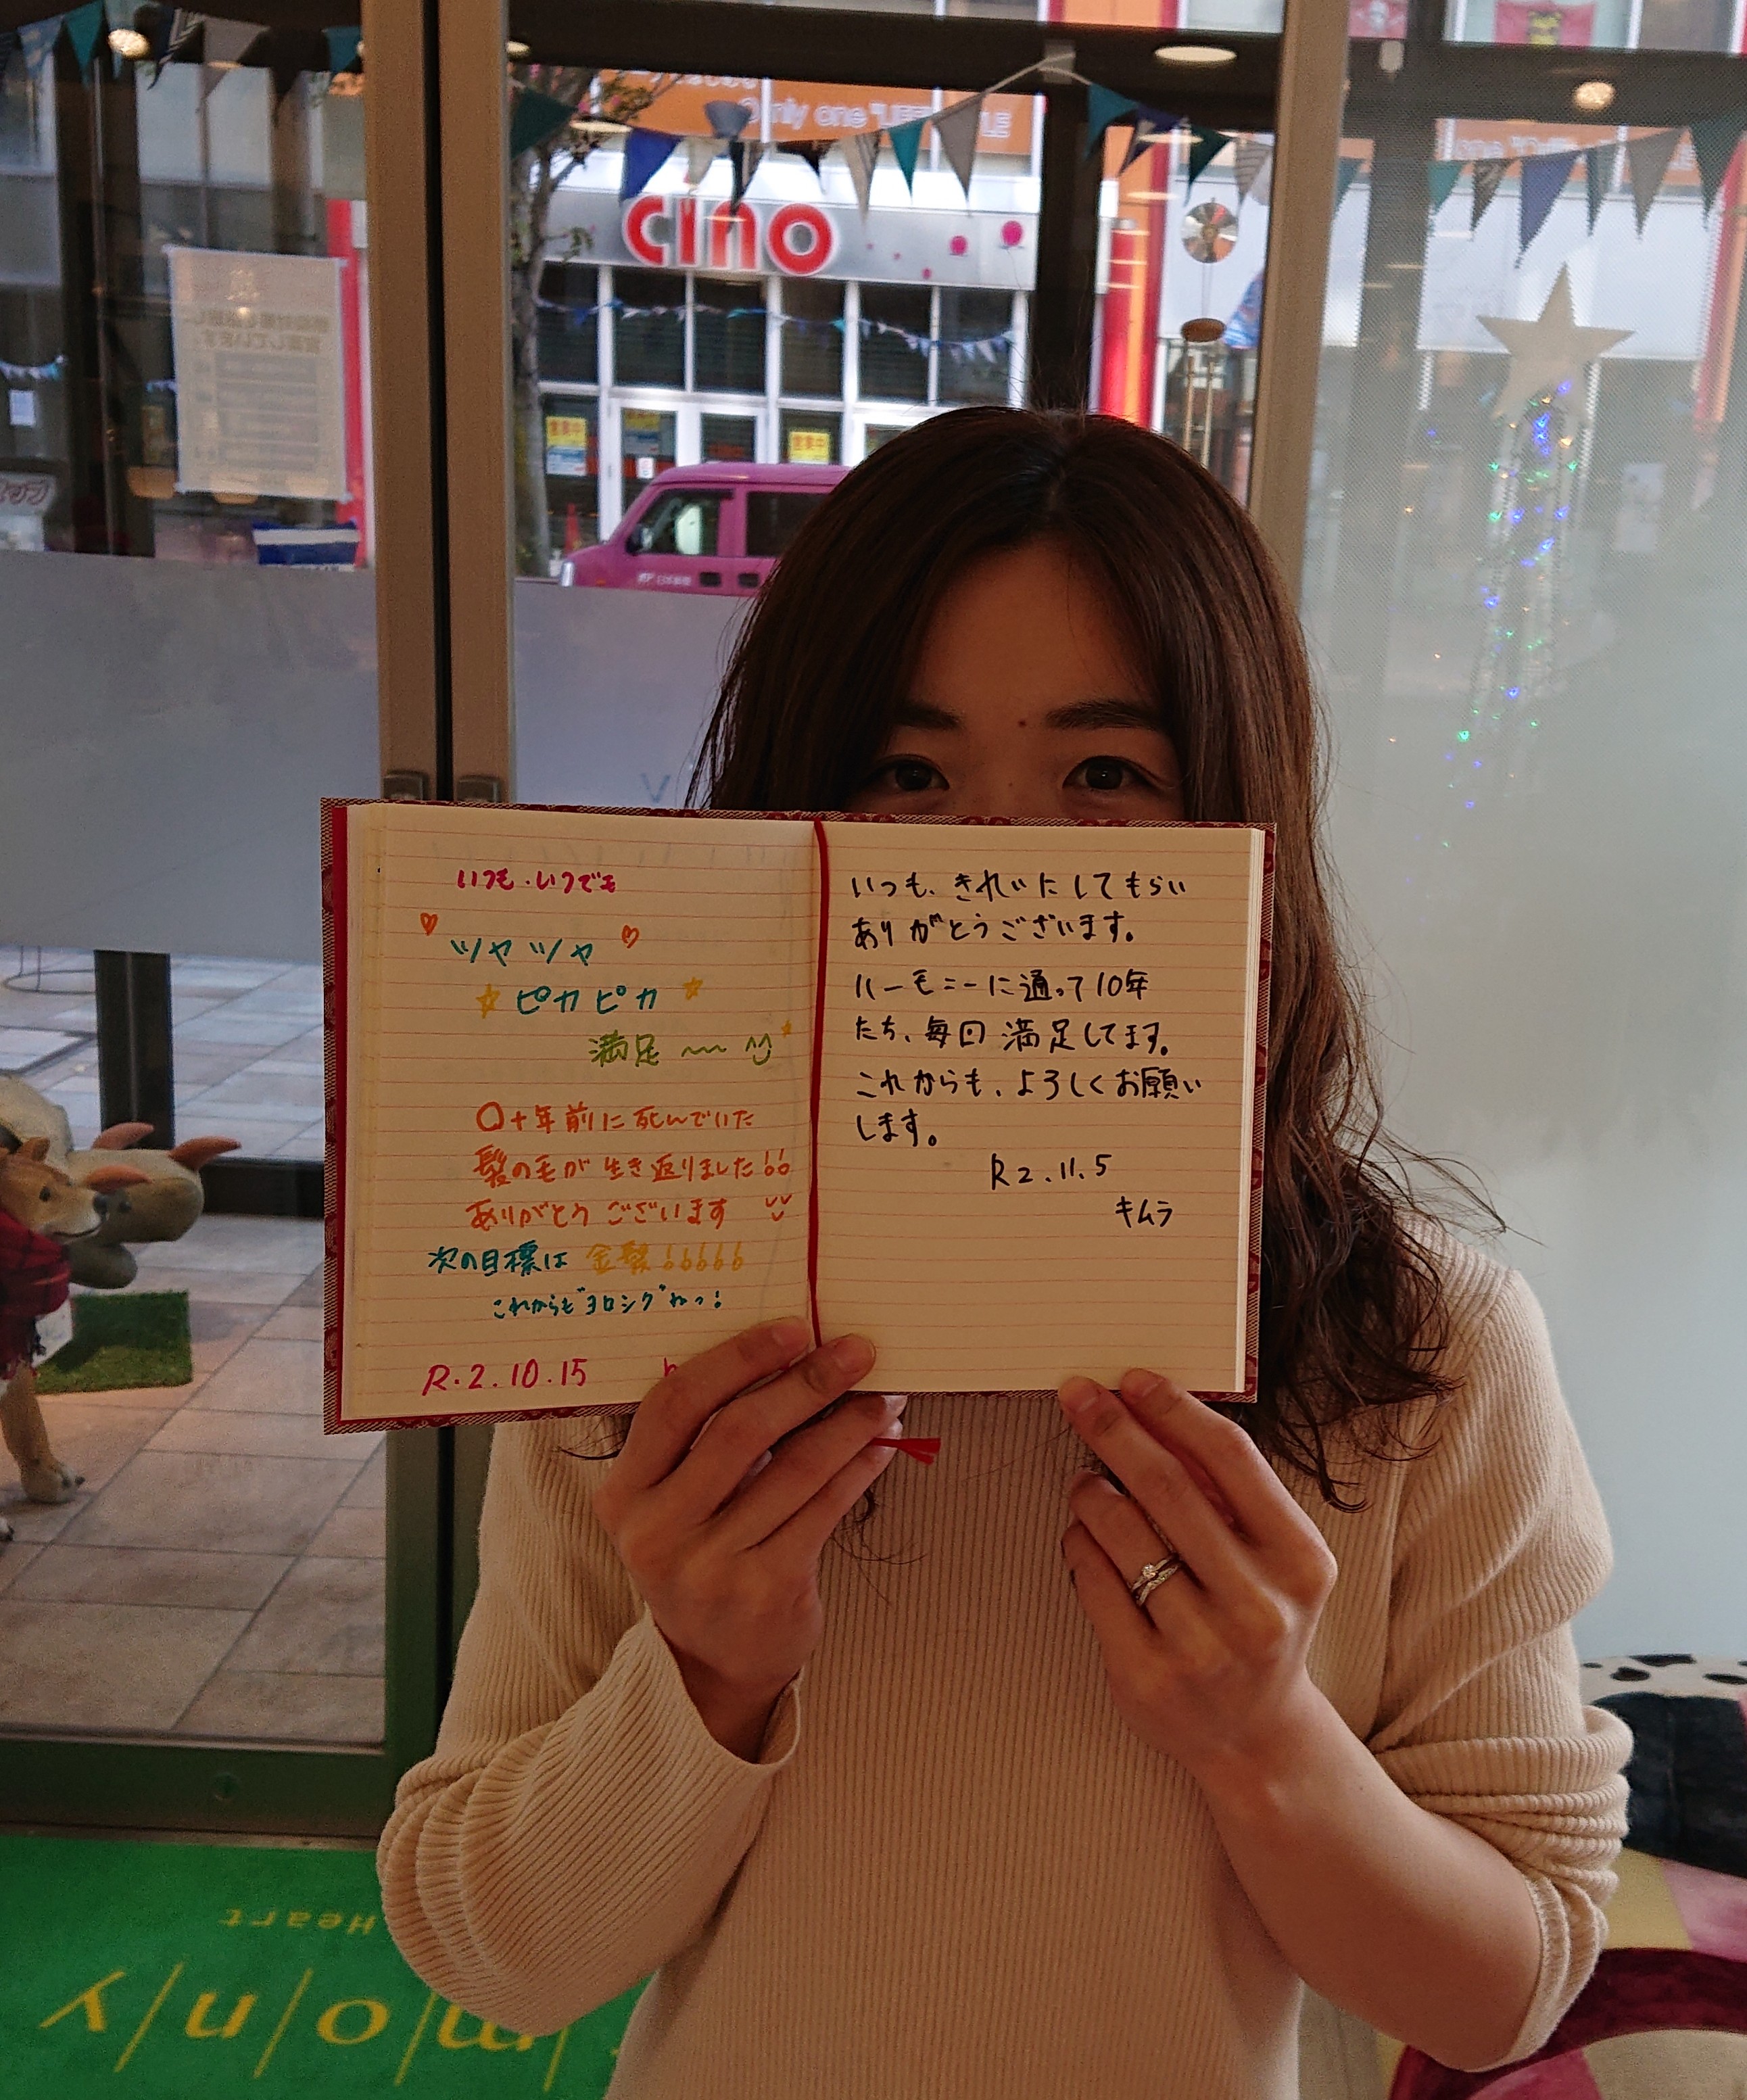 Only one
cino
営業中
営業中
いつも・いつでも
ツヤツヤ
ピカピカ
満足〜〜
〇十年前に死んでいた
髪の毛が生き返りました!!
ありがとうございます
次の目標は 金髪!!!!!!
これからも"ヨロシク"ねっ!
R.2.10.15
いつも、きれいにしてもらい
ありがとうございます。
ハーモニーに通って10年
たち、毎回満足してます。
これからも、よろしくお願い
します。
R2.11.5
キムラ
Heart
mony